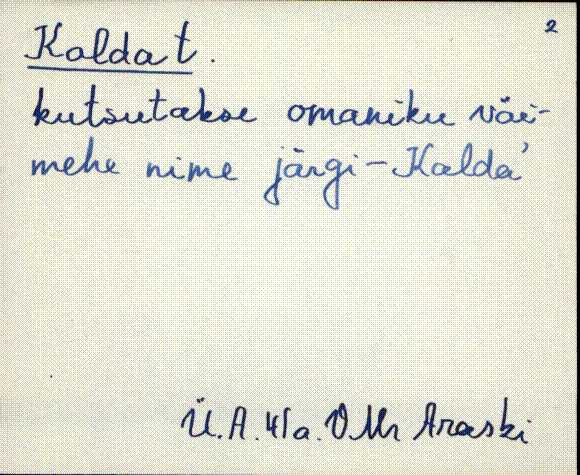 2
Kalda t.
kutsutakse omaniku väi-
mehe nime järgi - Kalda'
Ü. A. 41a. V. Mr Araski